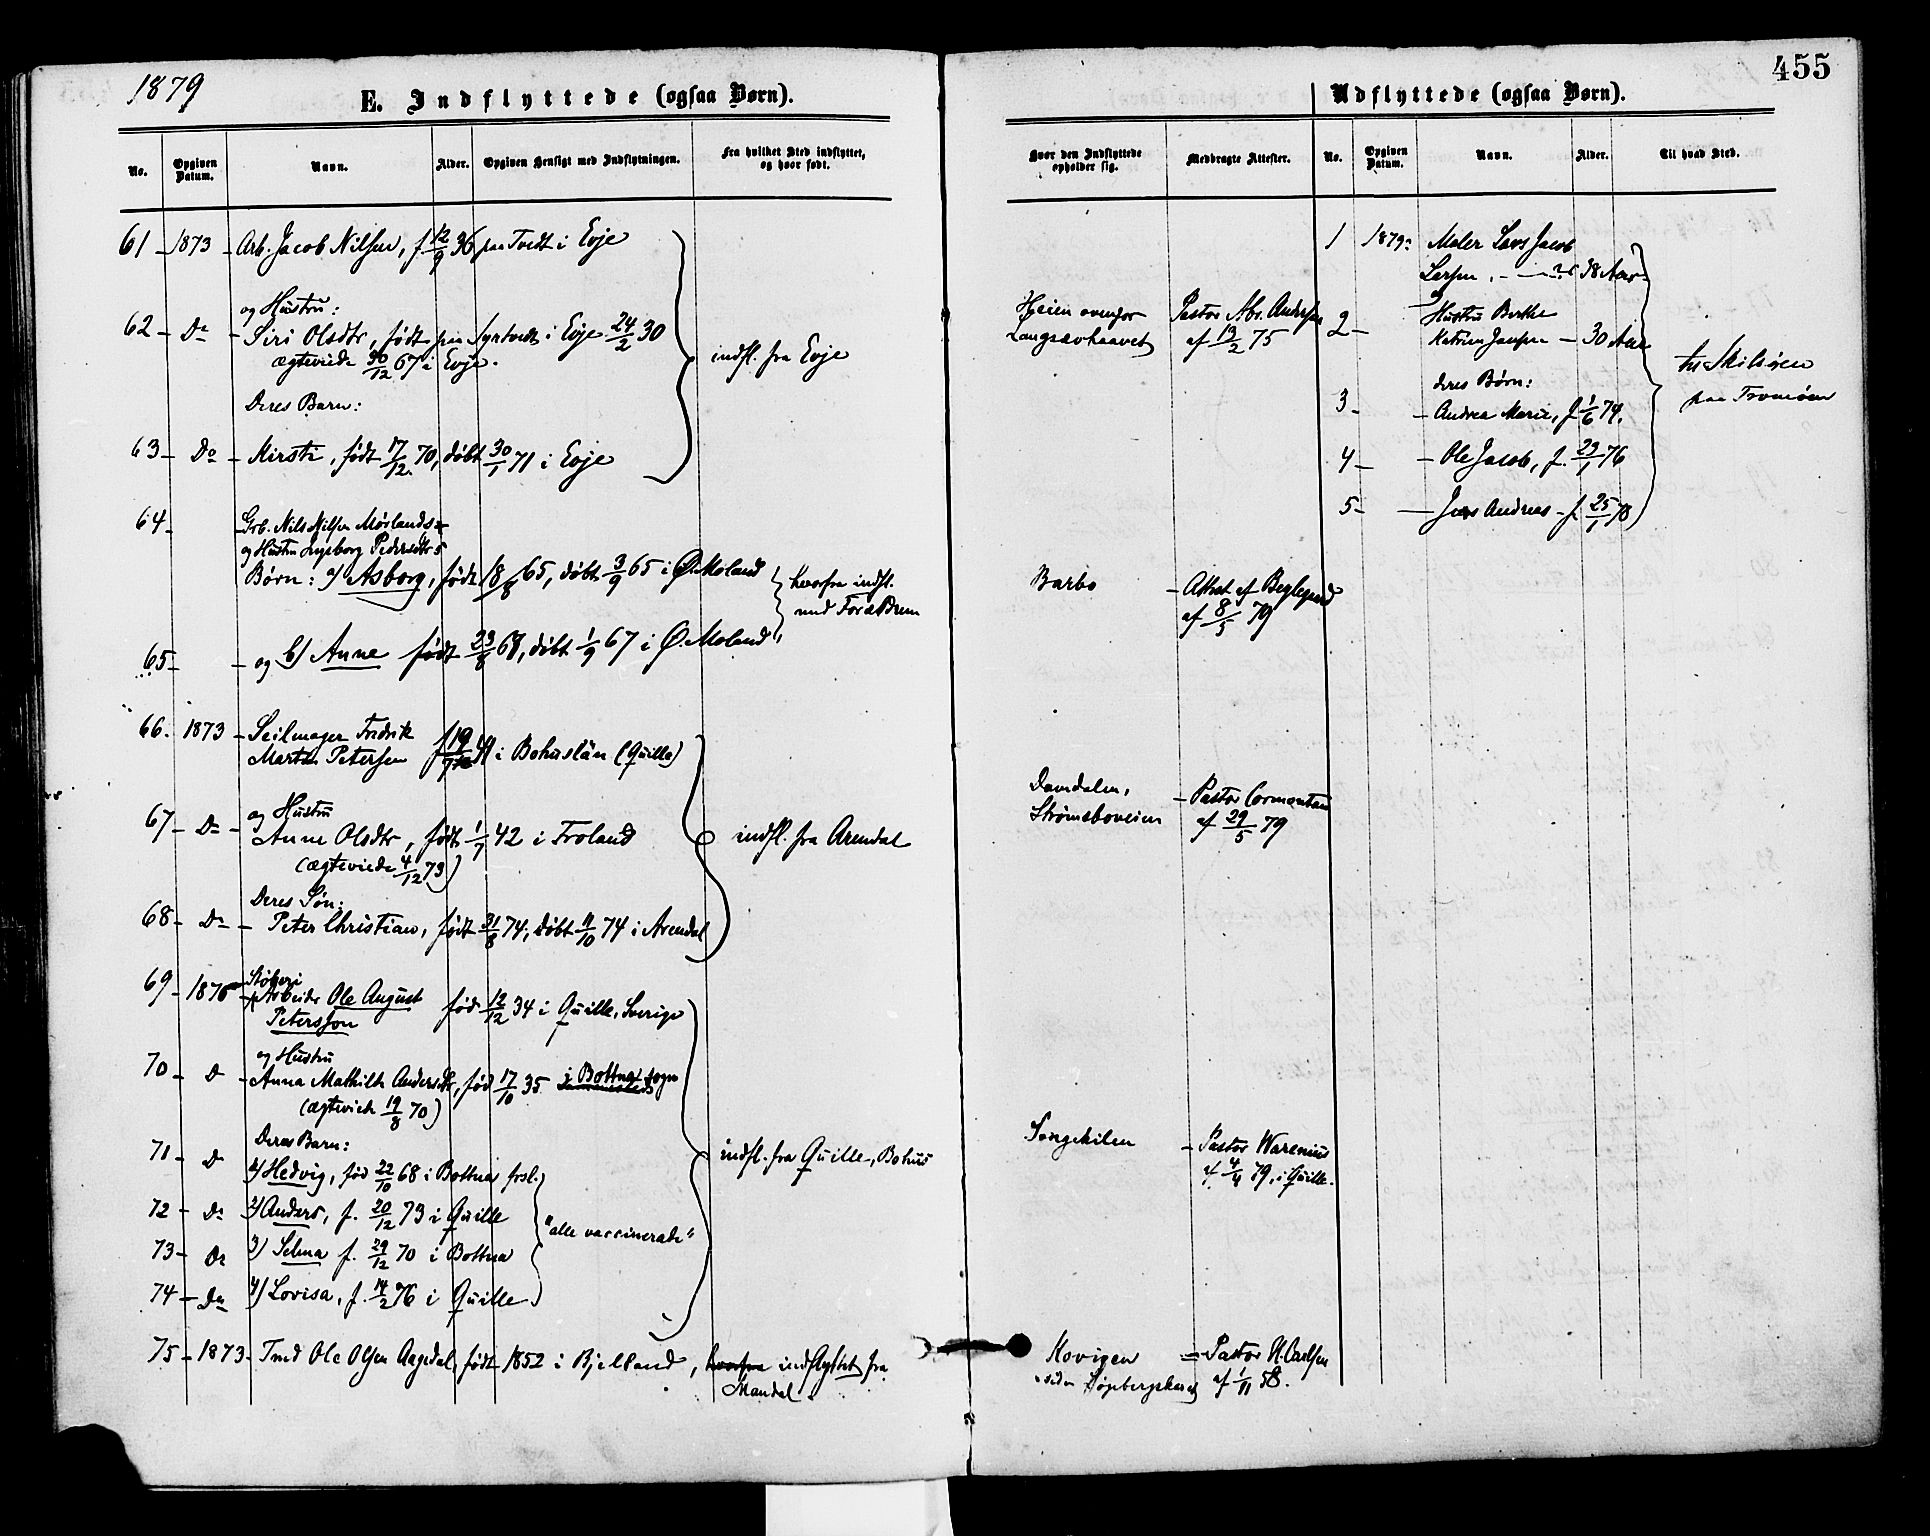 1879
E. Indflyttede (ogsaa Børn).
No.
Opgiven Datum.
Navn.
Alder.
Opgiven Hensigt med Indflytningen.
Fra hvilket Sted indflyttet, og hvor født.
61 - 1873 - Arb. Jacob Nilsen, f 12/9 36 paa Tvedt i Evje
og Hustru:
62 - Do - Siri Olsdtr, født paa Syrtvedt i Evje 24/2 30
ægteviede 30/12 67 i Evje.
indfl. fra Evje
Deres Barn:
63 - Do - Kirsti, født 17/12 70, døbt 30/1 71 i Evje
64 - Grb. Nils Nilsen Mørlands
og Hustru Ingeborg Pedersdtrs
Børn: a) Asborg, født 18/8 65, døbt 3/9 65 i Ø. Moland
hvorfra indfl.
med Forældrene
65 - og b) Anne født 23/8 67, døbt 1/9 67 i Ø. Moland
66. 1873 - Seilmager Fredrik
Martin Petersen f 19/7 i Bohuslän (Quille)
og Hustru
67 - Do - Anne Olsdtr, født 1/7 42 i Froland
indfl. fra Arendal
(ægteviede 4/12 73)
Deres Søn:
68 - Do - Peter Christian, født 31/8 74, døbt 11/10 74 i Arendal
69 - 1876
Arbeider Ole August
Petersson
fød 12/12 34 i Quille, Sverige
og Hustru
70 - D - Anna Mathilde Andersdtr, fød 17/10 35 i Bottna sogn
(ægteviede 19/8 70)
Deres Barn:
71 - D 1) Hedvig, fød 22/10 68 i Bottna forsl.
indfl. fra Quille, Bohus
72 - Do 2) Anders, f. 20/12 73 i Quille
"alle vaccinerede"
73 - Do 3) Selma f. 29/12 70 i Bottna
74 - Do 4) Lovisa, f. 14/2 76 i Quille
75 - 1873 - Tmd Ole Olsen Aagedal, født 1852 i Bjelland, hvorfra indflyttet fra
Mandal.
455
Udflyttede (ogsaa Børn).
Hvor den Indflyttede opholder sig.
Medbragte Attester.
No.
Opgiven Datum.
Navn.
Alder.
Til hvad Sted.
Heien ovenfor
Langsævhaavet
Pastor Abr. Andersen
af 13/2 75
Barbo
- Attest af Beglegaard
af 8/5 79
Damdalen,
Strømsboveien
- Pastor Cormontan
af 29/5 79
Songekilen
- Pastor Warenius
af 4/4 79, i Quille.
Kovigen
= Pastor H. Carlsen
af 1/11 58.
1 1879: Maler Lars Jacob
Larsen, 38 Aar
og
2 - Hustru Berthe
Katrine Jensen - 30 Aar
til Skilsøen
paa Tromøen
deres Børn:
3 - - Andrea Marie, f 1/6 74.
4 - - Ole Jacob, f. 29/1 76
5 - - Jens Andreas - f. 25/1 78